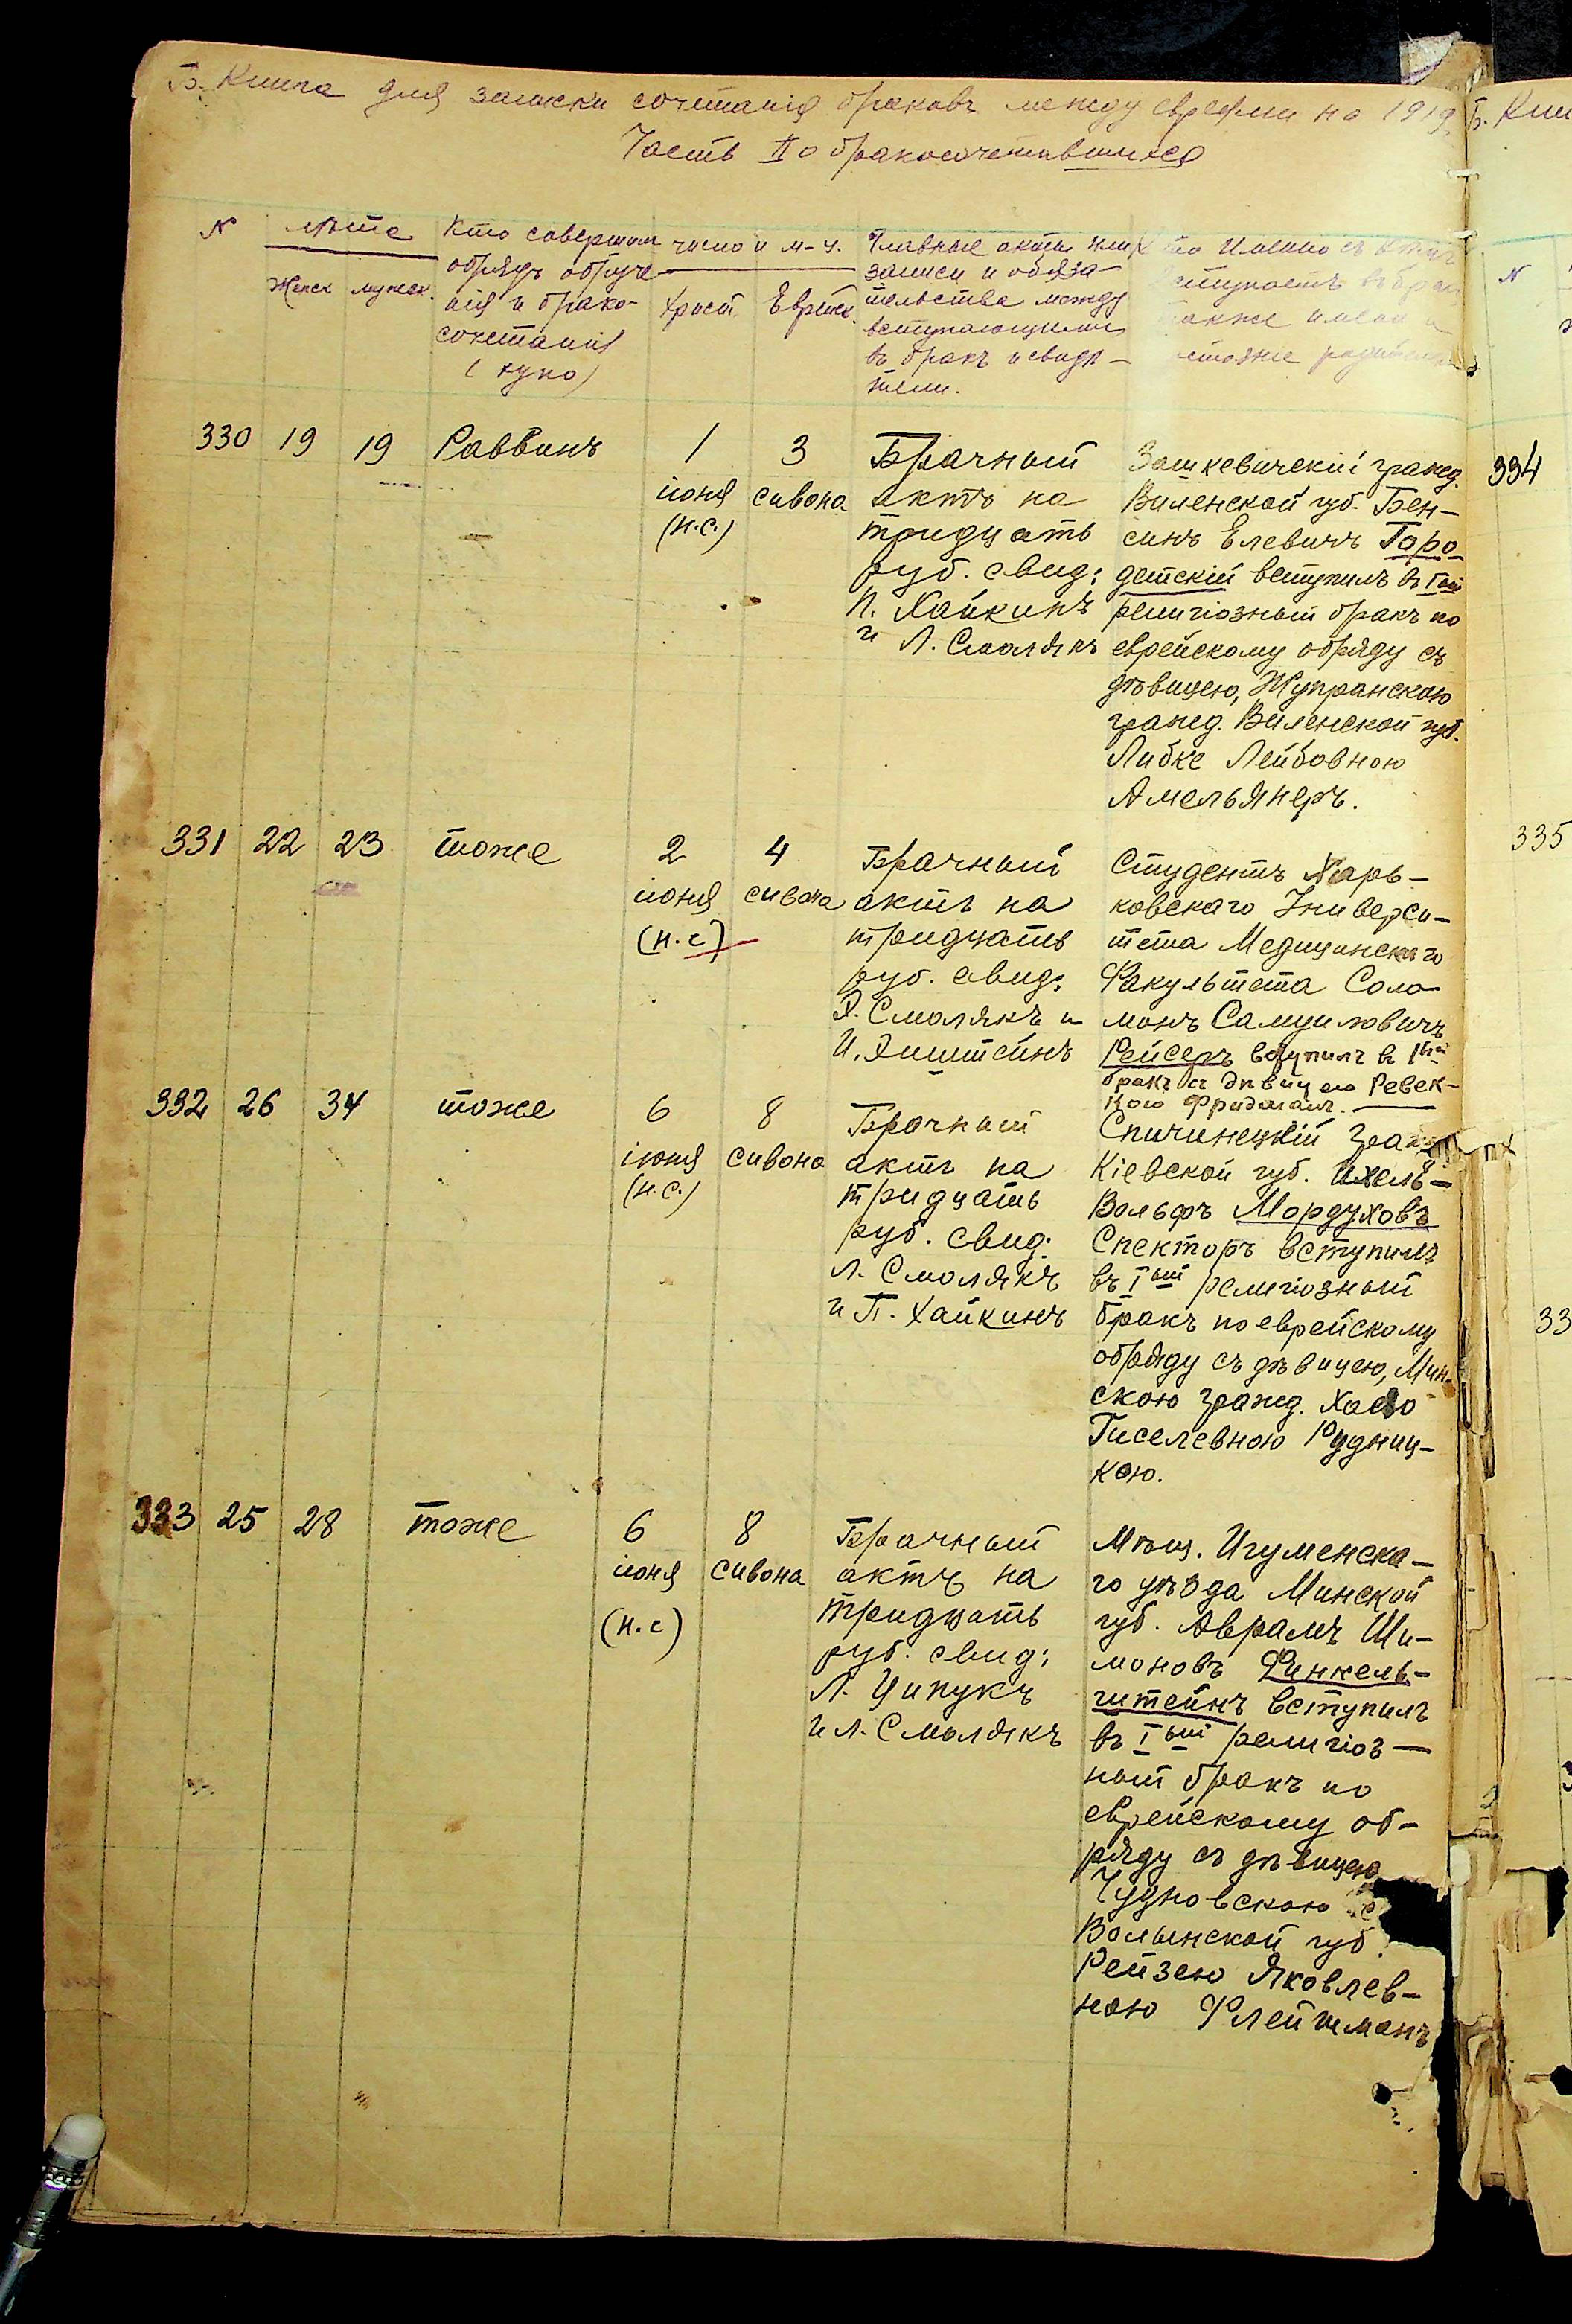 Б. Книга для записки сочетанія браковъ между евреями на 1919.
Часть II о бракосочетавшихся
N
лѣта
Женск мужеск.
Кто совершал
обрядъ обруче-
нія и брако-
сочетанія
(хупо)
число и м-ц.
Христ. Еврейск.
Главные акты или
записи и обяза-
тельства между
вступающими
въ бракъ и свидѣ-
тели.
Кто Именно съ кѣмъ
вступаетъ въ брак
также имена и
состояние родителей
330 19 19 Раввинъ
1
іюня
(н.с.)
3
сивона
Брачный
актъ на
тридцать
руб. свид:
П. Хайкинъ
и Л. Смолякъ
Зашкевичскій гражд.
Виленской губ. Бен-
синъ Елевичъ Горо-
детскій вступилъ въ Iый
религіозный бракъ по
еврейскому обряду съ
дѣвицею, Жупранскою
гражд. Виленской губ.
Либке Лейбовною
Амельянеръ.
331 22 23 тоже
2
іюня
(н.с)
4
сивона
Брачный
актъ на
тридцать
руб. свид:
Л. Смолякъ и
И. Эпштейнъ
Студентъ Харь-
ковскаго Универси-
тета Медицинскаго
Факультета Соло-
монъ Самуиловичъ
Рейсеръ вступилъ въ Iый
бракъ съ дѣвицею Ревек-
кою Фридманъ.
332 26 34 тоже
6
іюня
(н.с.)
8
сивона
Брачный
актъ на
тридцать
руб. свид:
Л. Смолякъ
и П. Хайкинъ
Спичинецкій граж
Кіевской губ. Ихель-
Вольфъ Мордуховъ
Спекторъ вступилъ
въ Iый религіозный
бракъ по еврейскому
обряду съ дѣвицею, Мин-
скою гражд. Хаею
Гиселевною Рудниц-
кою.
333 25 28 тоже
6
іюня
(н.с)
8
сивона
Брачный
актъ на
тридцать
руб. свид:
Л. Ципукъ
и Л. Смолякъ
Мѣщ. Игуменска-
го уѣзда Минской
губ. Аврамъ Ши-
моновъ Финкель-
штейнъ вступилъ
въ Iый религіоз-
ный бракъ по
еврейскому об-
ряду съ дѣвицею
Чудновскою
Волынской губ.
Рейзею Яковлев-
ною Флейшманъ
Б. Кни
N
334
335
33